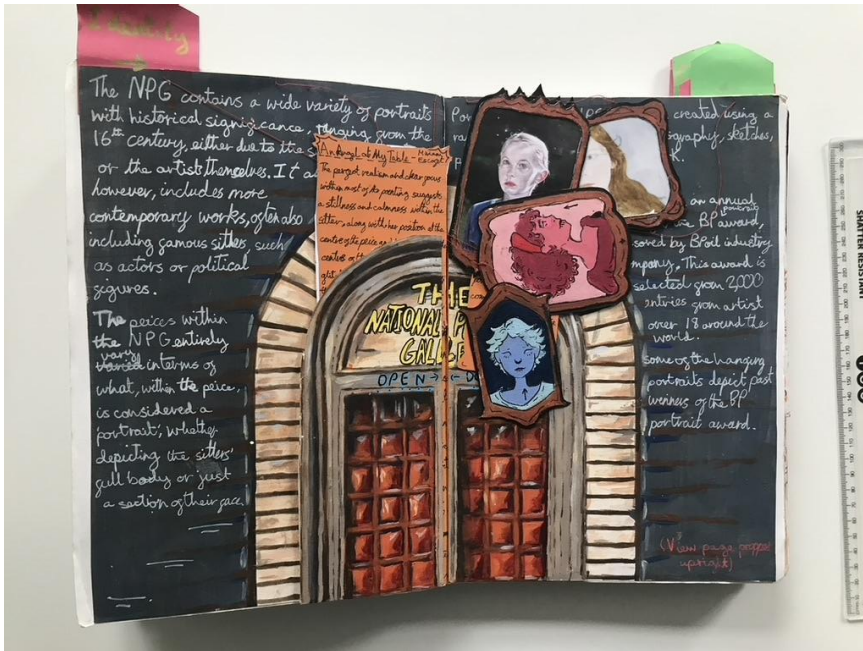 Identity
The NPG contains a wide variety of portraits
with historical significance, ranging from the
16th century, either due to the s
or the artist themselves. It a
however, includes more
contemporary works, often also
including famous sitters, such
as actors or political
figures.
The peices within
the NPG entirely
vary in terms of
what, within the peice,
is considered a
'portrait', whether
depicting the sitters'
full body or just
a section of their face.
An Angel at My Table -
The perfect realism and clear focus
within most of the painting suggests
a stillness and calmness within the
sitter, along with her position at the
centre of the peice
THE
NATIONAL P
GALLE
OPEN
Po
created using a
ra
ography, sketches,
k.
an annual
the BP portrait award,
sored by BP oil industry
mpany. This award is
selected from 2,000
entries from artist
over 18 around the
world.
Some of the hanging
portraits depict past
winners of the BP
portrait award.
(View page propped
upright)
SHATTER RESISTANT